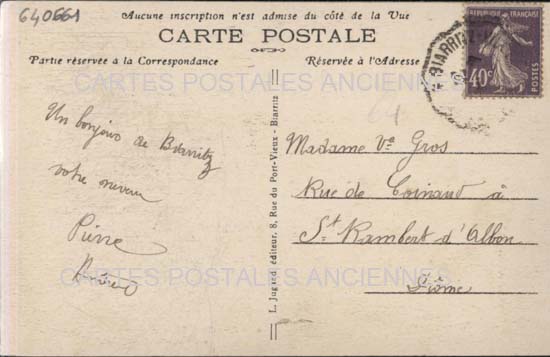 640661
Aucune inscription n'est admise du côté de la Vue
CARTE POSTALE
Partie réservée a la Correspondance
Réservée à l'Adresse
REPUBLIQUE FRANÇAISE
40c
POSTES
BIARRITZ
CARTES POSTALES ANCIENNES
61
Un bonjour de Biarritz
votre neveu
Pierre
L. Jugand, éditeur, 8, Rue du Port-Vieux - Biarritz
Madame Ve Gros
Rue de Coinaud à
St Rambert d'Albon
Drôme
CARTES POSTALES ANCIENNES